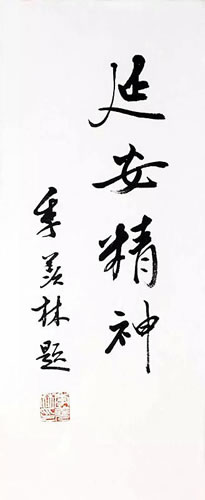 延安精神
季羡林题